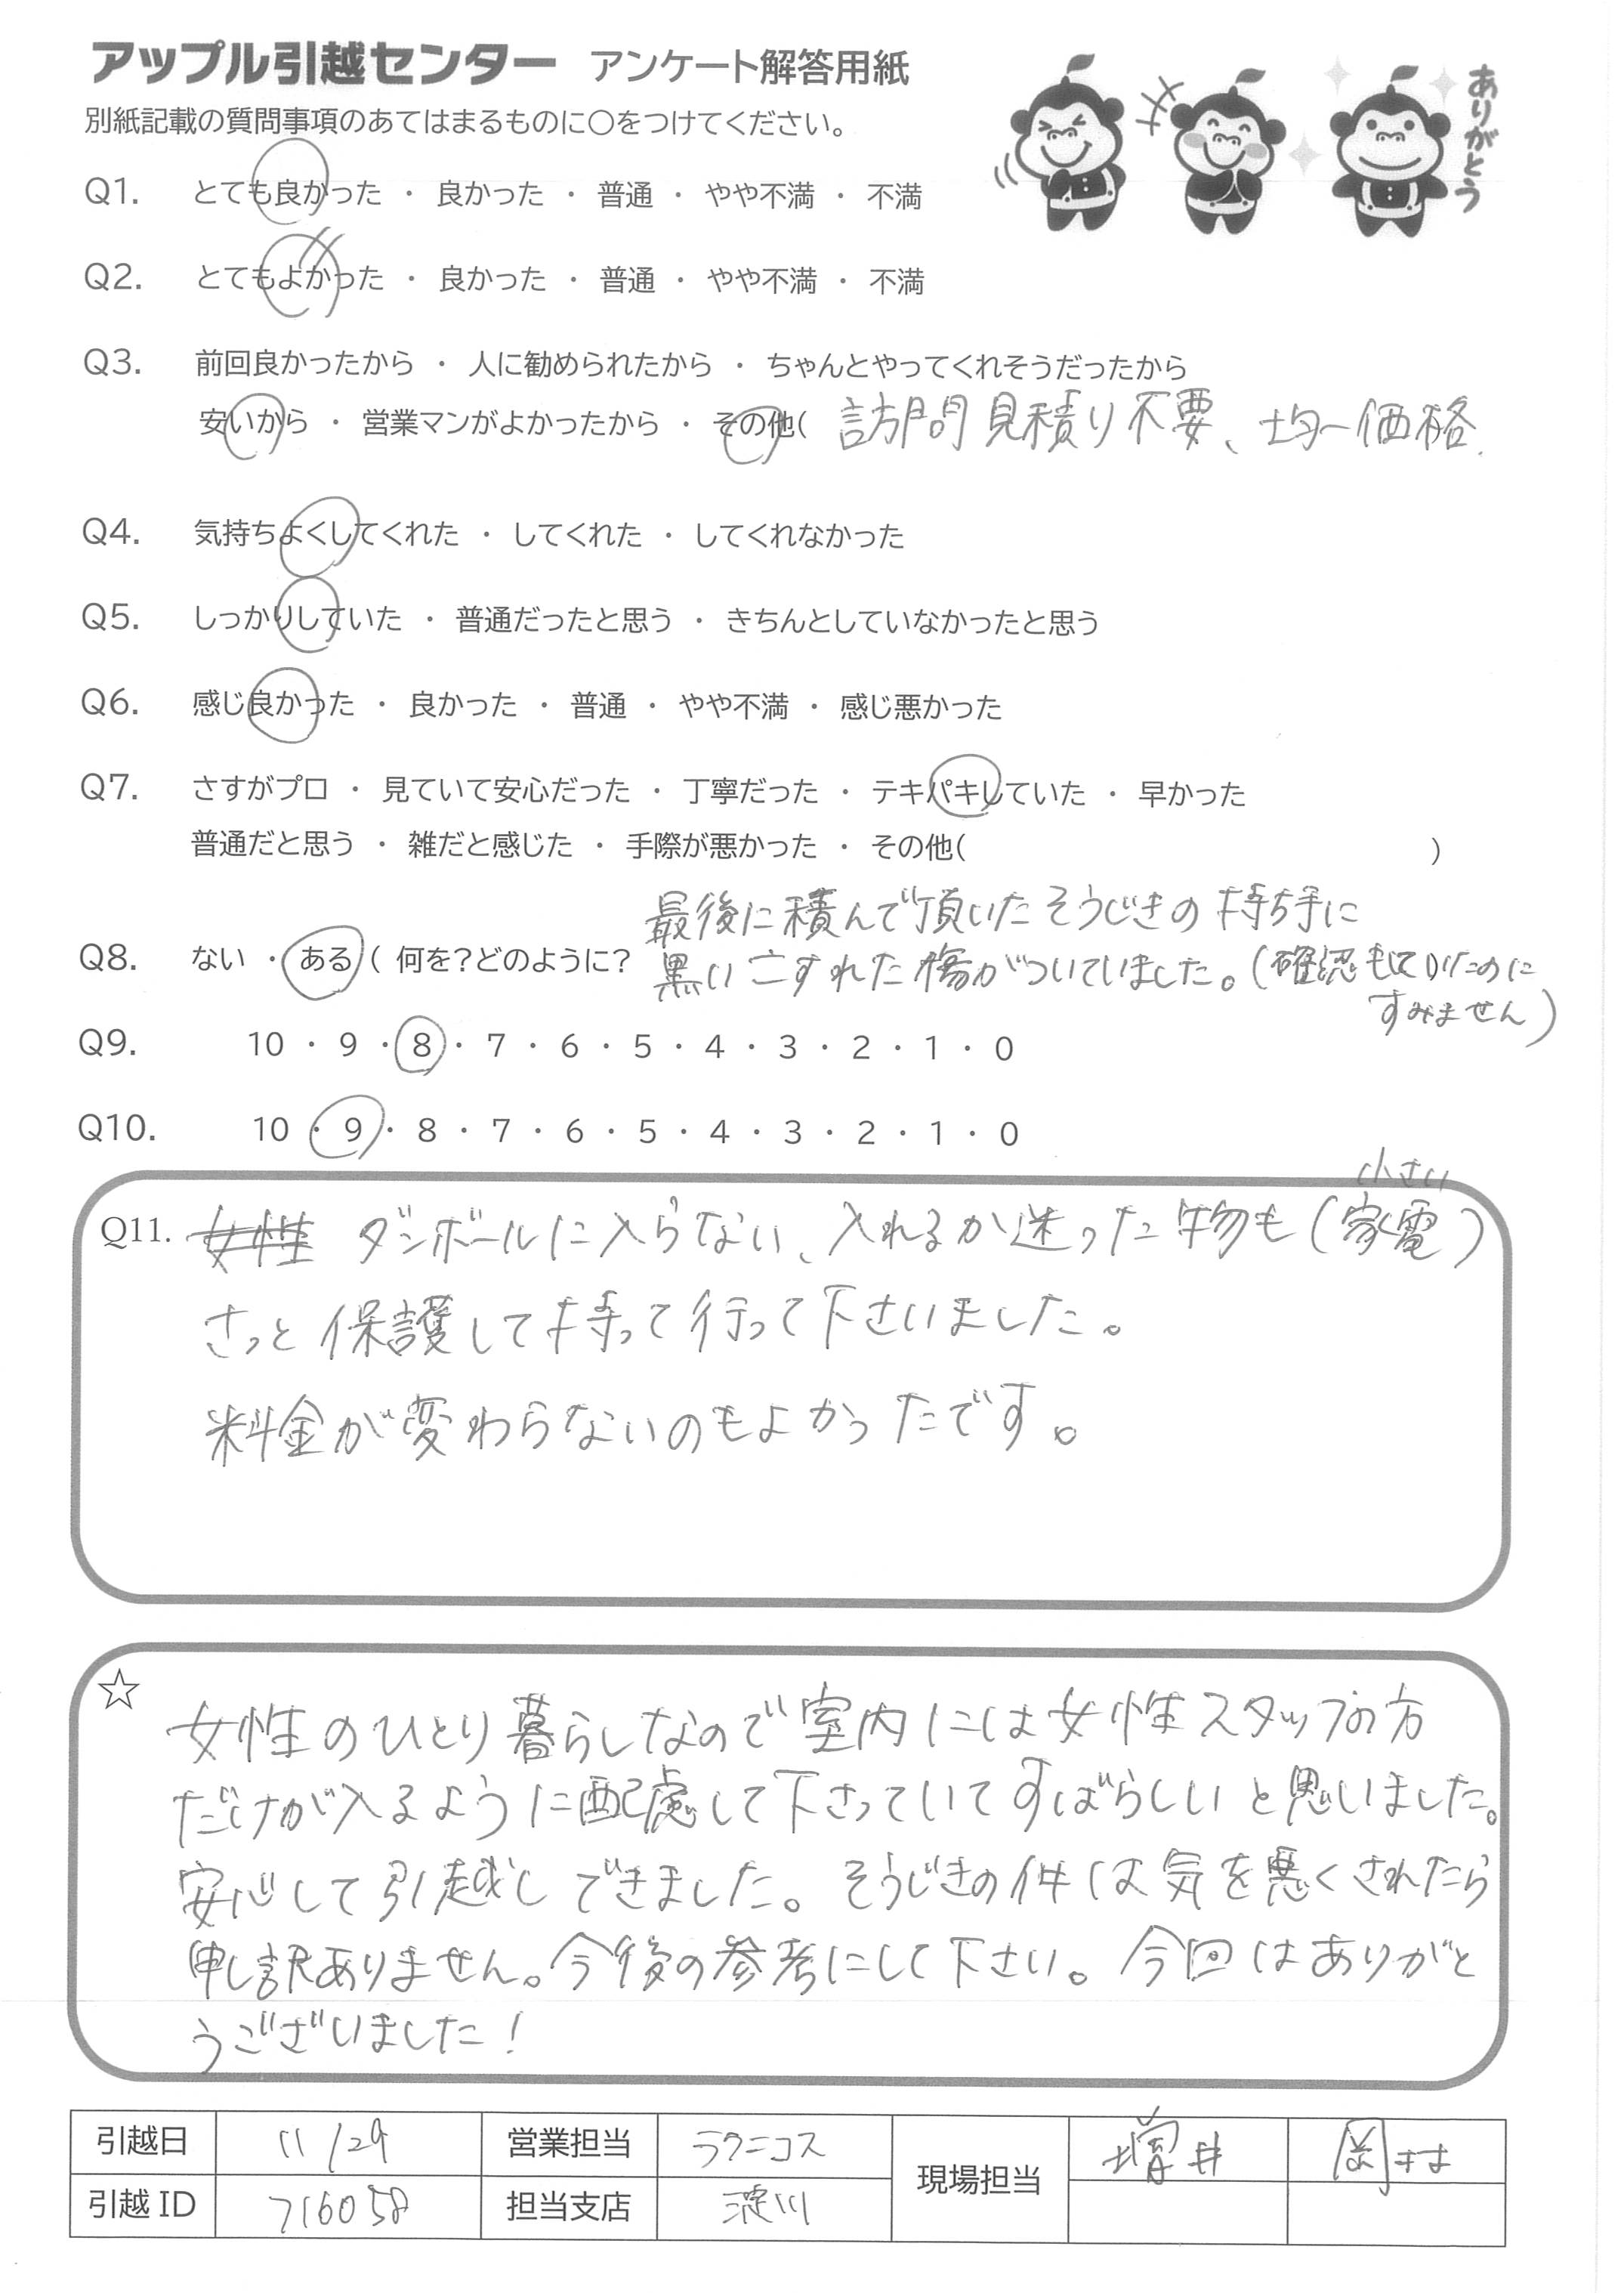 アップル引越センター アンケート解答用紙
ありがとう
別紙記載の質問事項のあてはまるものに〇をつけてください。
Q1. とても良かった ・ 良かった ・ 普通 ・ やや不満 ・ 不満
Q2. とてもよかった ・ 良かった ・ 普通 ・ やや不満 ・ 不満
Q3. 前回良かったから ・ 人に勧められたから ・ ちゃんとやってくれそうだったから
安いから ・ 営業マンがよかったから ・ その他( 訪問見積り不要、均一価格.
Q4. 気持ちよくしてくれた ・ してくれた ・ してくれなかった
Q5. しっかりしていた ・ 普通だったと思う ・ きちんとしていなかったと思う
Q6. 感じ良かった ・ 良かった ・ 普通 ・ やや不満 ・ 感じ悪かった
Q7. さすがプロ ・ 見ていて安心だった ・ 丁寧だった ・ テキパキしていた ・ 早かった
普通だと思う ・ 雑だと感じた ・ 手際が悪かった ・ その他( )
最後に積んで頂いたそうじきの持ち手に
Q8. ない ・ ある ( 何を?どのように? 黒いこすれた傷がついていました。(確認もしていたのに
すみません)
Q9. 10 ・ 9 ・ 8 ・ 7 ・ 6 ・ 5 ・ 4 ・ 3 ・ 2 ・ 1 ・ 0
Q10. 10 ・ 9 ・ 8 ・ 7 ・ 6 ・ 5 ・ 4 ・ 3 ・ 2 ・ 1 ・ 0
小さい
Q11. 女性 ダンボールに入らない、入れるか迷った物も(家電)
さっと保護して持って行って下さいました。
料金が変わらないのもよかったです。
☆
女性のひとり暮らしなので室内には女性スタッフの方
だけが入るように配慮して下さっていてすばらしいと思いました。
安心して引越しできました。そうじきの件は気を悪くされたら
申し訳ありません。今後の参考にして下さい。今回はありがと
うございました!
引越日 11/29 営業担当 ラクニコス 現場担当 増井 岡村
引越 ID 716058 担当支店 淀川